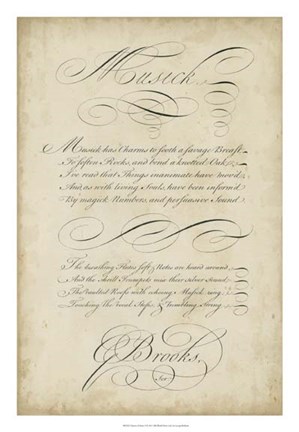 Musick
Musick has Charms to sooth a savage Breast
To soften Rocks, and bend a knotted Oak,
I've read that Things inanimate have mov'd
And, as with living Souls, have been inform'd
By magick Numbers and persuasive Sound
The breathing Flutes soft Notes are heard around
And the Shrill Trumpets mix their silver Sound
The vaulted Roofs with echoing Musick ring
Touching the vocal & trembling String
E Brooks,
Scr